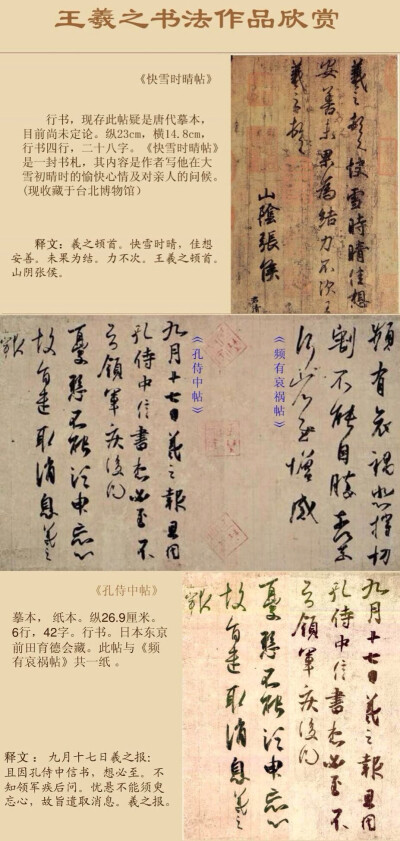 王羲之书法作品欣赏
《快雪时晴帖》
行书，现存此帖疑是唐代摹本，
目前尚未定论。纵23cm，横14.8cm，
行书四行，二十八字。《快雪时晴帖》
是一封书札，其内容是作者写他在大
雪初晴时的愉快心情及对亲人的问候。
(现收藏于台北博物馆)
释文：羲之顿首。快雪时晴，佳想
安善。未果为结。力不次。王羲之顿首。
山阴张侯。
羲之頓首快雪時晴佳想
安善未果為結力不次王
羲之頓首
山陰張侯
頻有哀禍悲摧切
割不能自勝奈何
《频有哀祸帖》
《孔侍中帖》
九月十七日羲之報且因
孔侍中信書想必至不
知領軍疾後問
憂懸不能須臾忘心
故旨遣取消息羲之
報
《孔侍中帖》
摹本， 纸本。纵26.9厘米。
6行，42字。行书。日本东京
前田育德会藏。此帖与《频
有哀祸帖》共一纸 。
释文 ： 九月十七日羲之报;
且因孔侍中信书，想必至。不
知领军疾后问。忧悬不能须臾
忘心，故旨遣取消息。羲之报。
九月十七日羲之報且因
孔侍中信書想必至不
知領軍疾後問
憂懸不能須臾忘心
故旨遣取消息羲之
報